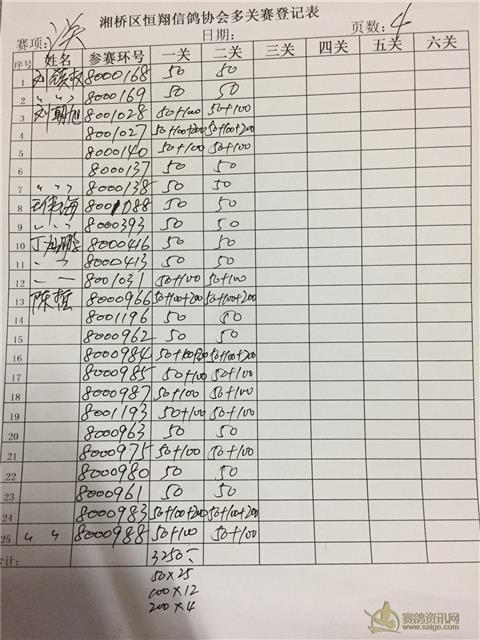 湘桥区恒翔信鸽协会多关赛登记表
赛项: 关 日期: 页数: 4
序号 姓名 参赛环号 一关 二关 三关 四关 五关 六关
1 8000168 50 50
2 〃 〃 8000169 50 50
3 刘朝旭 8001028 50+100 50+100
4 8001027 50+100+200 50+100+200
5 8000140 50+100 50+100
6 8000137 50 50
7 〃 〃 8000138 50 50
8 王伟海 8001088 50 50
9 〃 〃 8000393 50 50
10 8000416 50 50
11 〃 〃 8000413 50 50
12 8001031 50+100 50+100
13 陈哲 8000966 50+100+200 50+100+200
14 8001196 50 50
15 8000962 50 50
16 8000984 50+100+200 50+100+200
17 8000985 50+100 50+100
18 8000987 50+100 50+100
19 8001193 50+100 50+100
20 8000963 50 50
21 8000975 50+100 50+100
22 8000980 50 50
23 8000961 50 50
24 8000983 50+100+200 50+100+200
25 〃 〃 8000988 50+100 50+100
合计: 3250
50×25
100×12
200×4
赛鸽资讯网
www.saige.com